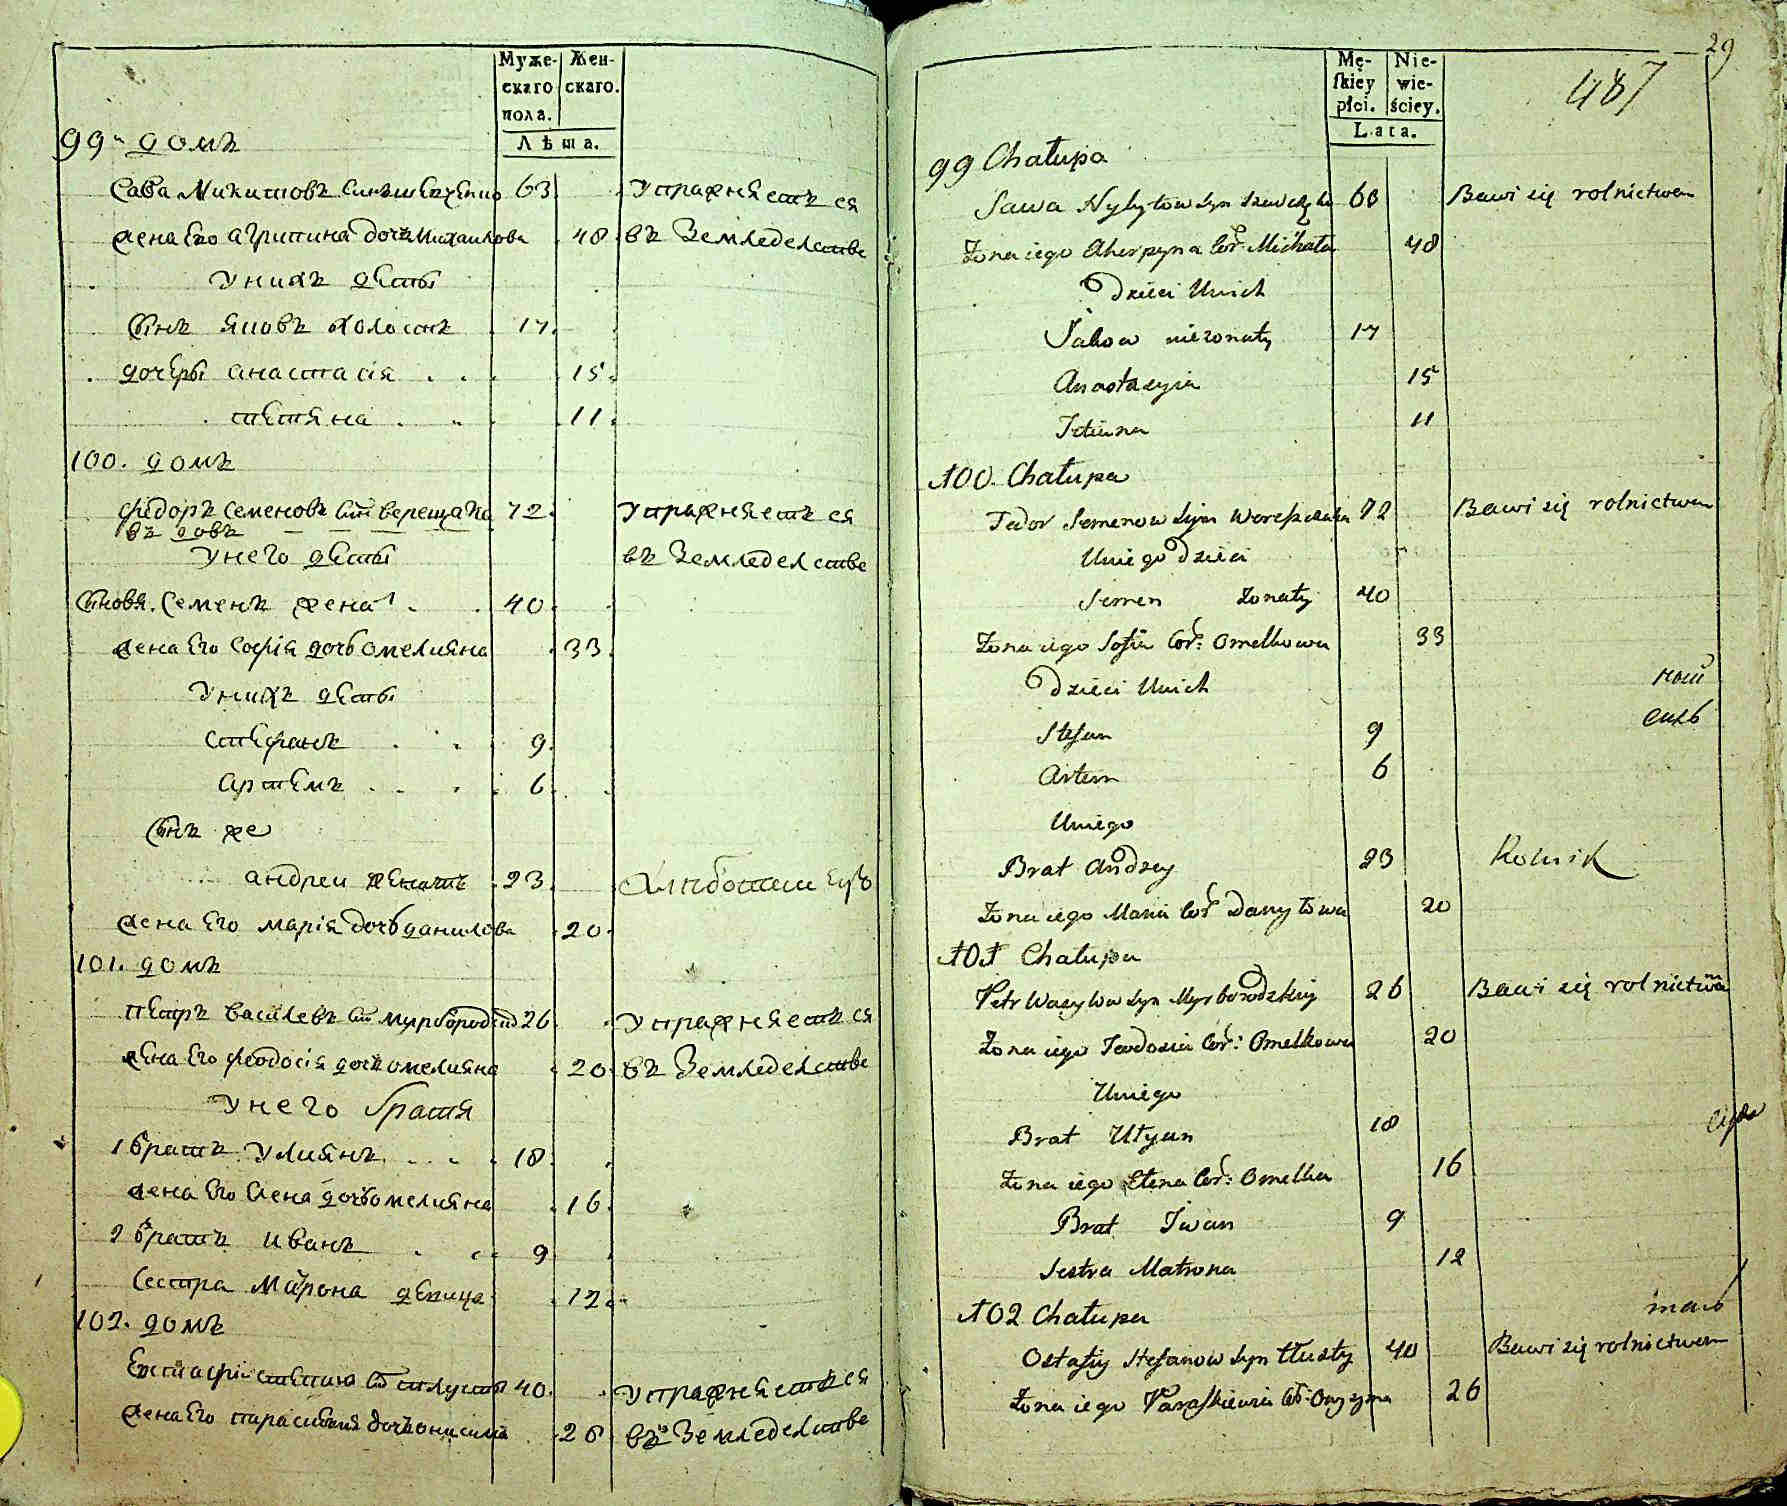 Муже-
скаго
пола.
Жен-
скаго.
Лѣта.
99 домъ
Сава Микитовъ синъ Шевченко 63 Упражняетъся
жена Его агрипина дочъ Михаилова 48 въ Земледелстве
Унихъ дети
Синъ яковъ холостъ 17
дочери анастасія 15
тетяна 11
100. домъ
Федоръ семеновъ син верещака 72 Упражняетъ ся
въ довъ
Унего дети въ Земледелстве
синовя. Семенъ жена 40
жена Его софія дочь омеляна 33
Унихъ дети
Стефанъ 9
артемъ 6
синъ же
андреи женатъ 23
жена Его марія дочь данилова 20
101. домъ
Петръ василевъ син мирбород 26 Упражняетъ ся
жена Его феодосія дочь омеляна 20 въ Земледелстве
Унего братя
1 братъ улиянъ 18
жена Его Елена дочь омеляна 16
2 братъ иванъ 9
Сестра Матрона девица 12
102. домъ
40 Упражняетъся
жена Его параскевия дочь онисима 26 въ Земледелстве
29
487
Mę-
skiey
płci.
Nie-
wie-
ściey.
Lata.
99 Chałupa
Sawa Nykytow Syn Szewczęko 63 Bawi się rolnictwem
Żona iego Aherpyna Cor: Michała 48
Dzieci Unich
Jakow nieżonaty 17
Anastazyia 15
Tetiana 11
100. Chałupa
Fedor Semenow Syn Wereszczaka 72 Bawi się rolnictwem
Uniego dzieci
Semen Żonaty 40
Żona iego Sofia Cor: Omelkowa 33
Dzieci Unich
Stefan 9
Artem 6
Uniego
Brat Andrzey 23 Rolnik
Żona iego Maria Cor Danyłowa 20
101 Chałupa
Petr Wasylow Syn Myrborodzkiy 26 Bawi się rolnictwem
Żona iego Teodozia Cor: Omelkowa 20
Uniego
Brat Ulyan 18
Żona iego Elena Cor: Omelka 16
Brat Iwan 9
Sestra Matrona 12
102 Chałupa
Ostafiy Stefanow Syn tłusty 40 Bawi się rolnictwem
Żona iego Paraskiewia Cor: Onyzyma 26